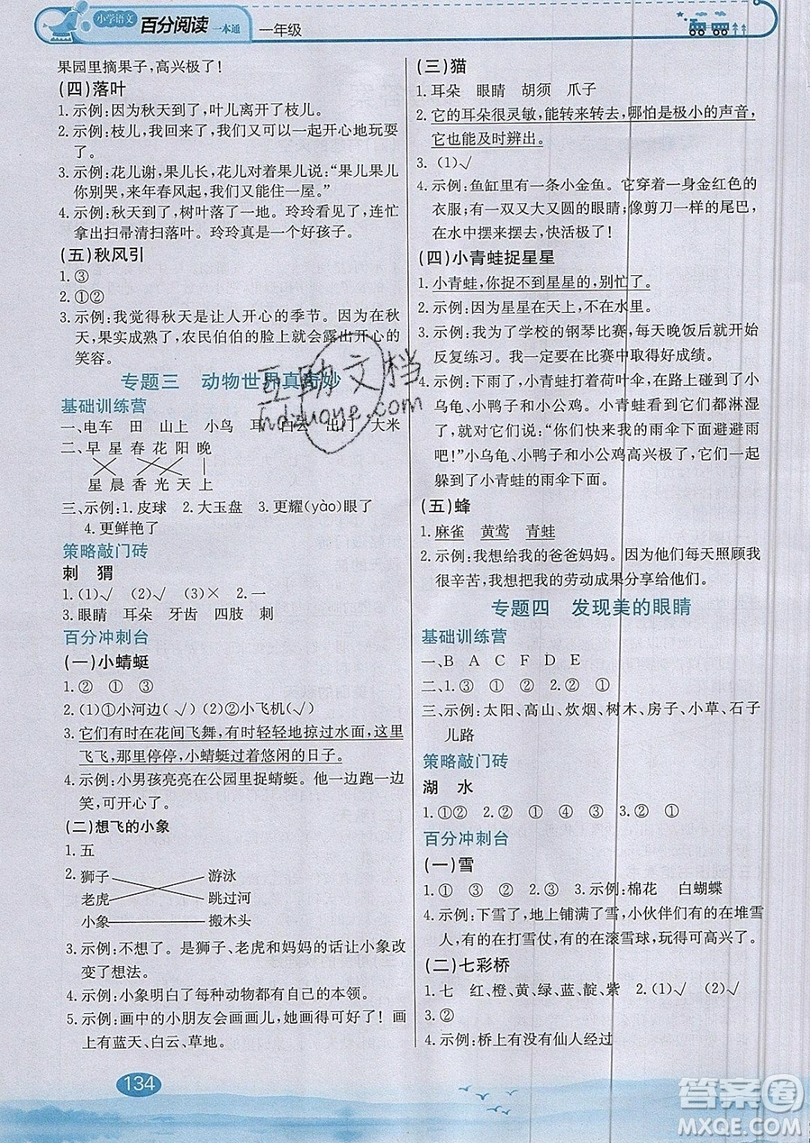 小学语文 百分阅读 一本通 一年级
果园里摘果子，高兴极了！
(四)落叶
1. 示例：因为秋天到了，叶儿离开了枝儿。
2. 示例：枝儿，我们又可以一起开心地玩耍
了。
3. 示例：花儿谢，果儿长，花儿说：“果儿果儿
你别哭，来年春风起，我们又能住一屋。”
4. 示例：秋天到了，树叶落了一地。玲玲看见了，连忙
拿出扫帚清扫落叶。玲玲真是一个好孩子。
(五)秋风引
1. ③
2. ①②
3. 示例：我觉得秋天是让人开心的季节。因为在秋
天，果实成熟了，农民伯伯的脸上就会露出开心的
笑容。
专题三 动物世界真奇妙
基础训练营
一、电车 田 山上 小鸟 耳 白云 出门 大米
二、早 星 春 花 阳 晚
星 晨 香 光 天 上
三、示例：1. 皮球 2. 大玉盘 3. 更耀(yào)眼了
4. 更鲜艳了
策略敲门砖
刺 猬
1. (1)√ (2)√ (3)× 2. 一
3. 眼睛 耳朵 牙齿 四肢 刺
百分冲刺台
(一)小蜻蜓
1. ② ① ③
2. (1)①小河边(√) (2)②小飞机(√)
3. 它们有时在花间飞舞，有时轻轻地掠过水面，这里
飞飞，那里停停，小蜻蜓过着悠闲的日子。
4. 示例：小男孩亮亮在公园里捉蜻蜓。他一边跑一边
笑，可开心了。
(二)想飞的小象
1. 五
2. 狮子 游泳
老虎 跳过河
小象 搬木头
3. 示例：不想了。是狮子、老虎和妈妈的话让小象改
变了想法。
4. 示例：小象明白了每种动物都有自己的本领。
5. 示例：画中的小朋友会画画儿，她画得可好了！画
上有蓝天、白云、草地。
134
(三)猫
1. 耳朵 眼睛 胡须 爪子
2. 它的耳朵很灵敏，能转来转去，哪怕是极小的声音，
它也能及时辨出。
3. (1)√
4. 示例：鱼缸里有一条小金鱼。它穿着一身金红色的
衣服；有一双又大又圆的眼睛；像剪刀一样的尾巴，
在水中摆来摆去，快活极了！
(四)小青蛙捉星星
1. 小青蛙，你捉不到星星的，别忙了。
2. 示例：因为星星在天上，不在水里。
3. 示例：我为了学校的钢琴比赛，每天放学回家就开始
反复练习。我希望在比赛中取得好成绩。
4. 示例：下雨了，小青蛙撑着荷叶伞，在路上碰到了小
乌龟、小鸭子和小公鸡。小青蛙看到它们都淋湿
了，就对它们说：“你们快来我的雨伞下面避避雨
吧！”小乌龟、小鸭子和小公鸡高兴极了！它们一起
躲到了小青蛙的雨伞下面。
(五)蜂
1. 麻雀 黄莺 青蛙
2. 示例：我想给我的爸爸妈妈。因为他们每天照顾我
很辛苦，我想把我的劳动成果分享给他们。
专题四 发现美的眼睛
基础训练营
一、B A C F D E
二、1. ③ ① ② 2. ② ① ③
三、示例：太阳、高山、炊烟、树木、房子、小草、石子
儿路
策略敲门砖
湖 水
1. ①② 2. ② ① ④ ③ 3. ② ①
百分冲刺台
(一)雪
1. ② ① ③ 2. ② ① ③ 3. 示例：棉花 白蝴蝶
4. 示例：下雪了，地上铺满了雪，小伙伴们有的在堆雪
人，有的在打雪仗，有的在滚雪球，玩得可高兴了。
(二)七彩桥
1. 七 红、橙、黄、绿、蓝、靛、紫 2. (1)√ (2)√
3. ②
4. 示例：桥上有没有仙人经过
互助文档
hdzuoye.com
答案圈
MXQE.COM